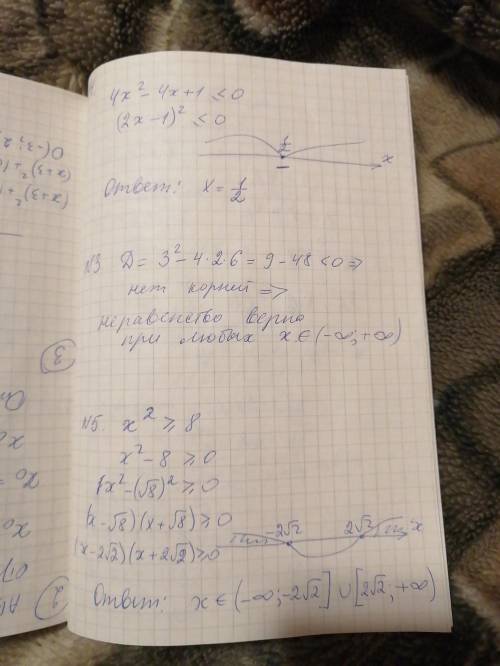 4x² - 4x + 1 ≤ 0
(2x - 1)² ≤ 0
1/2
x
Ответ: x = 1/2
N3 D = 3² - 4·2·6 = 9 - 48 < 0 ⇒
нет корней ⇒
неравенство верно
при любых x ∈ (-∞; +∞)
N5. x² ≥ 8
x² - 8 ≥ 0
x² - (√8)² ≥ 0
(x - √8)(x + √8) ≥ 0
(x - 2√2)(x + 2√2) ≥ 0
-2√2 2√2 x
Ответ: x ∈ (-∞; -2√2] ∪ [2√2; +∞)
3
2